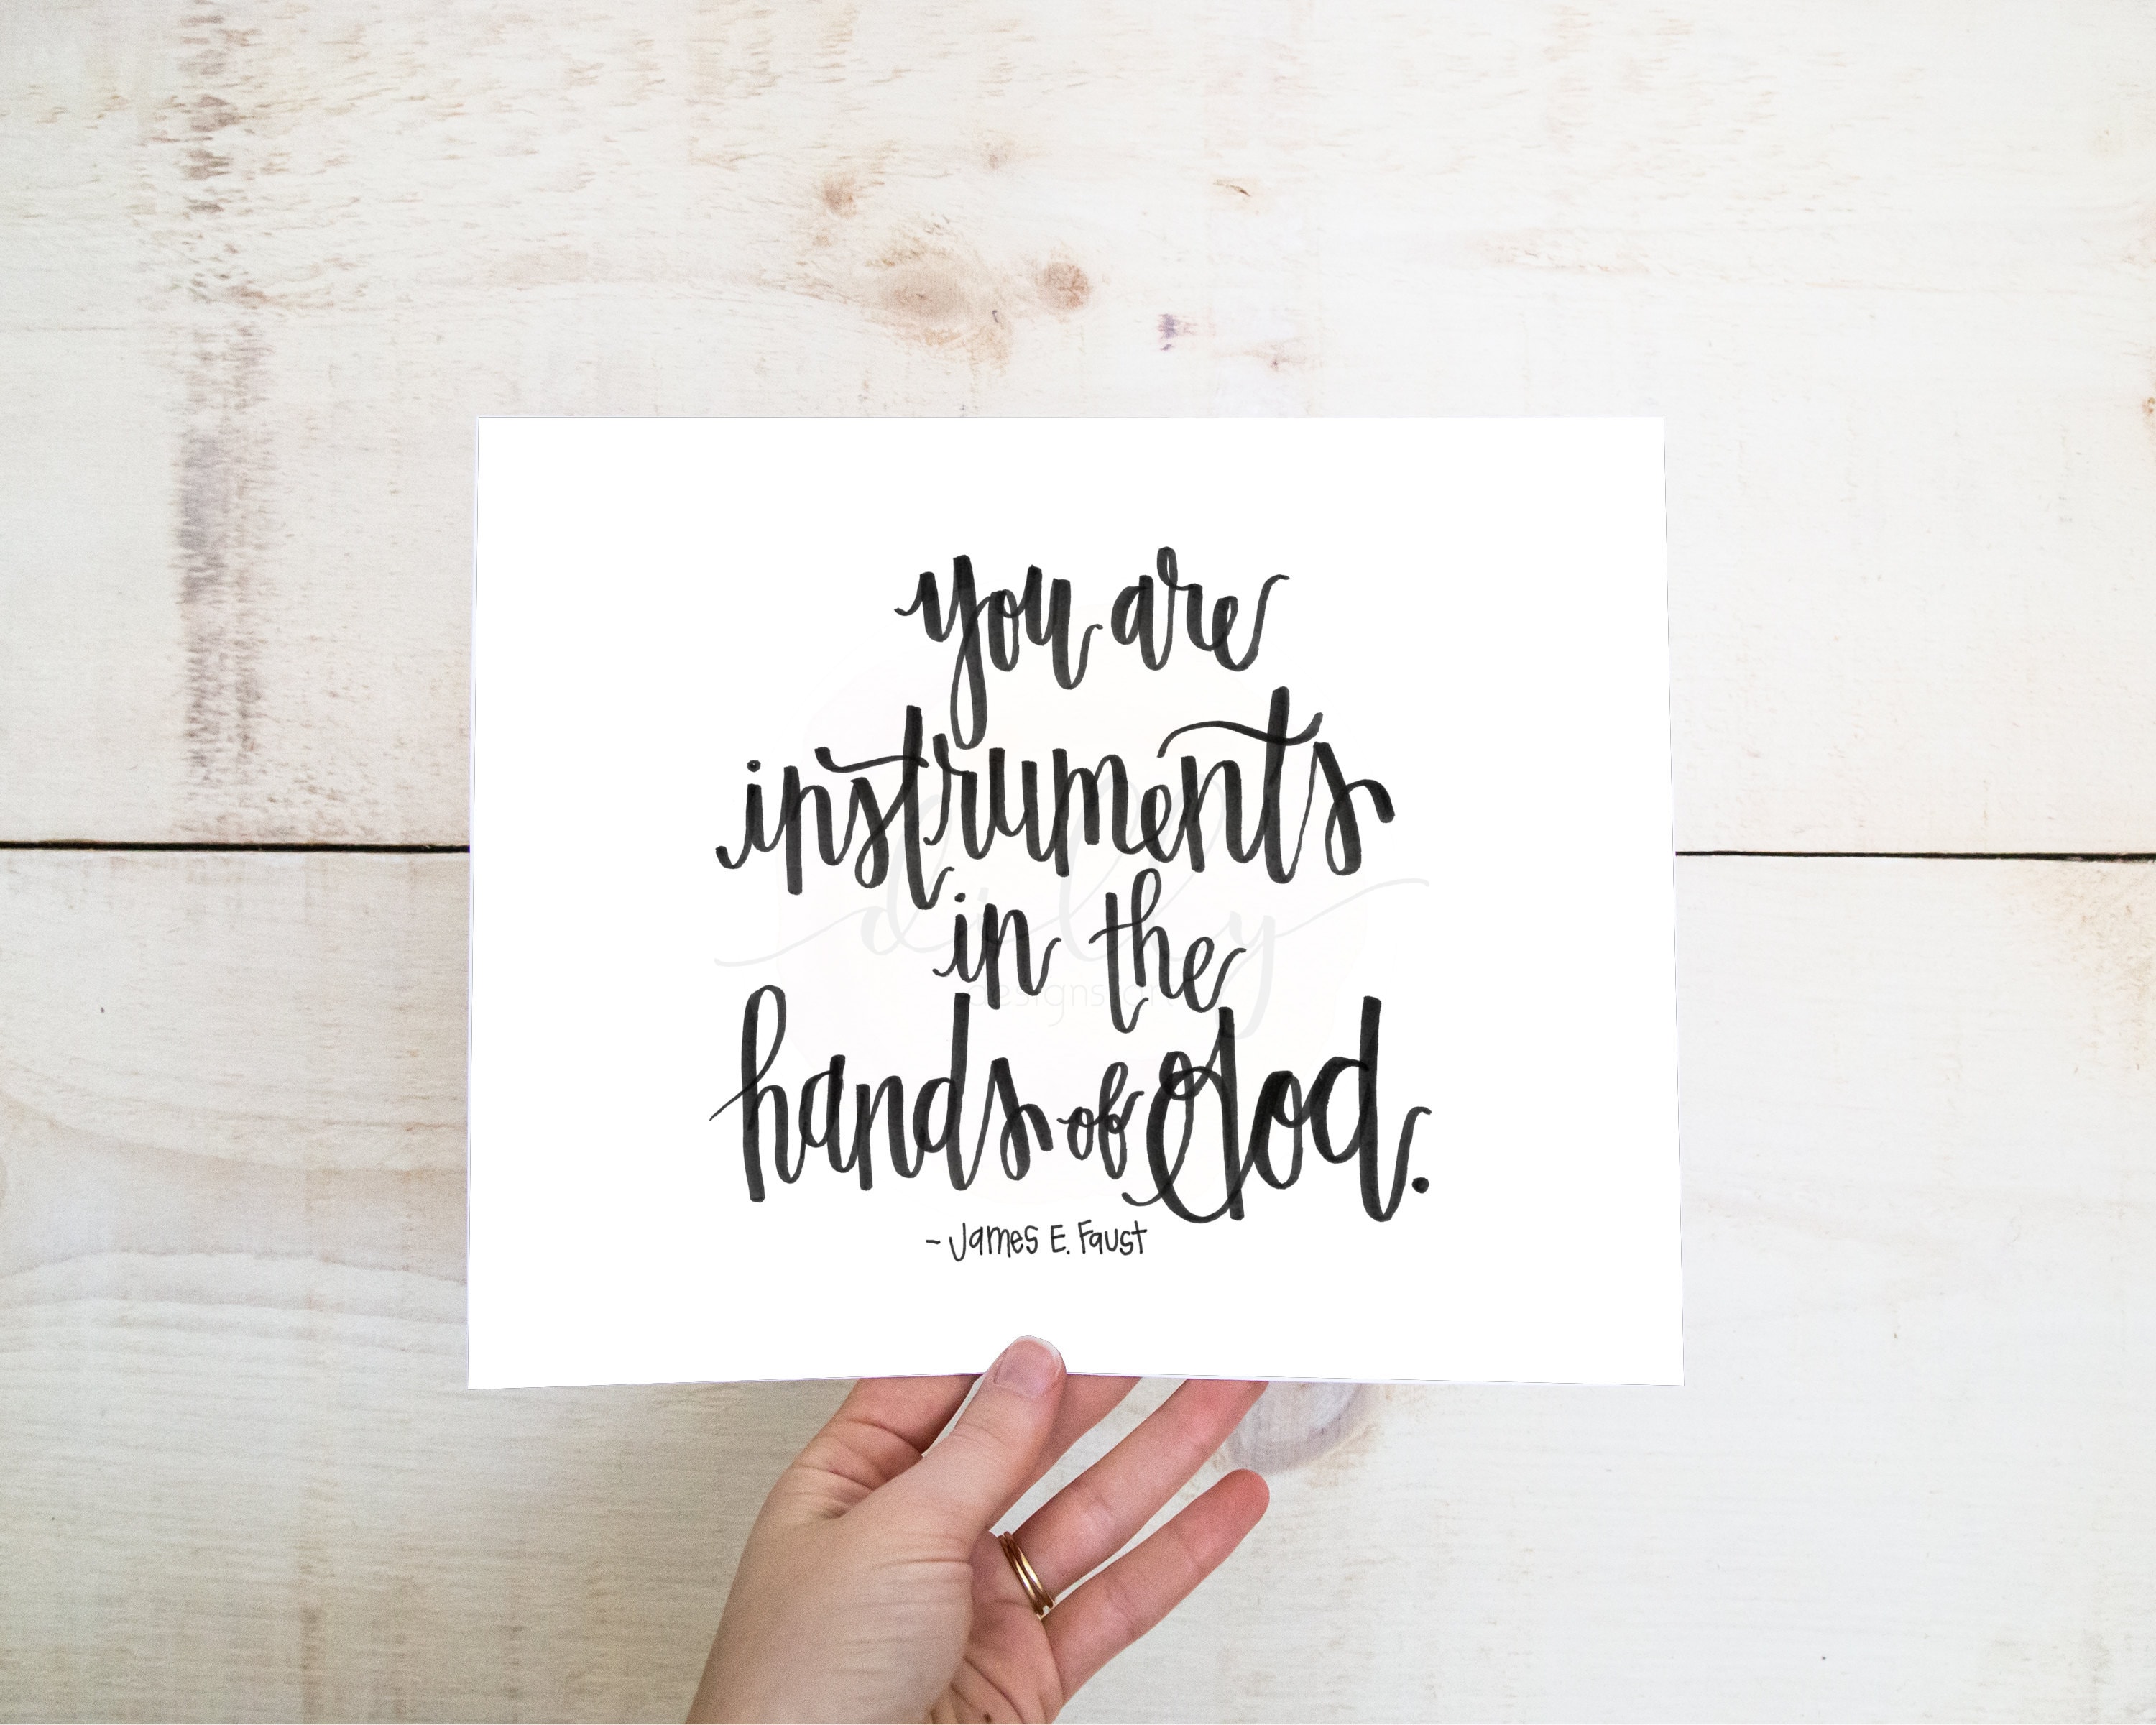 you are
instruments
in the
hands of God.
~ James E. Faust
dilly
designs